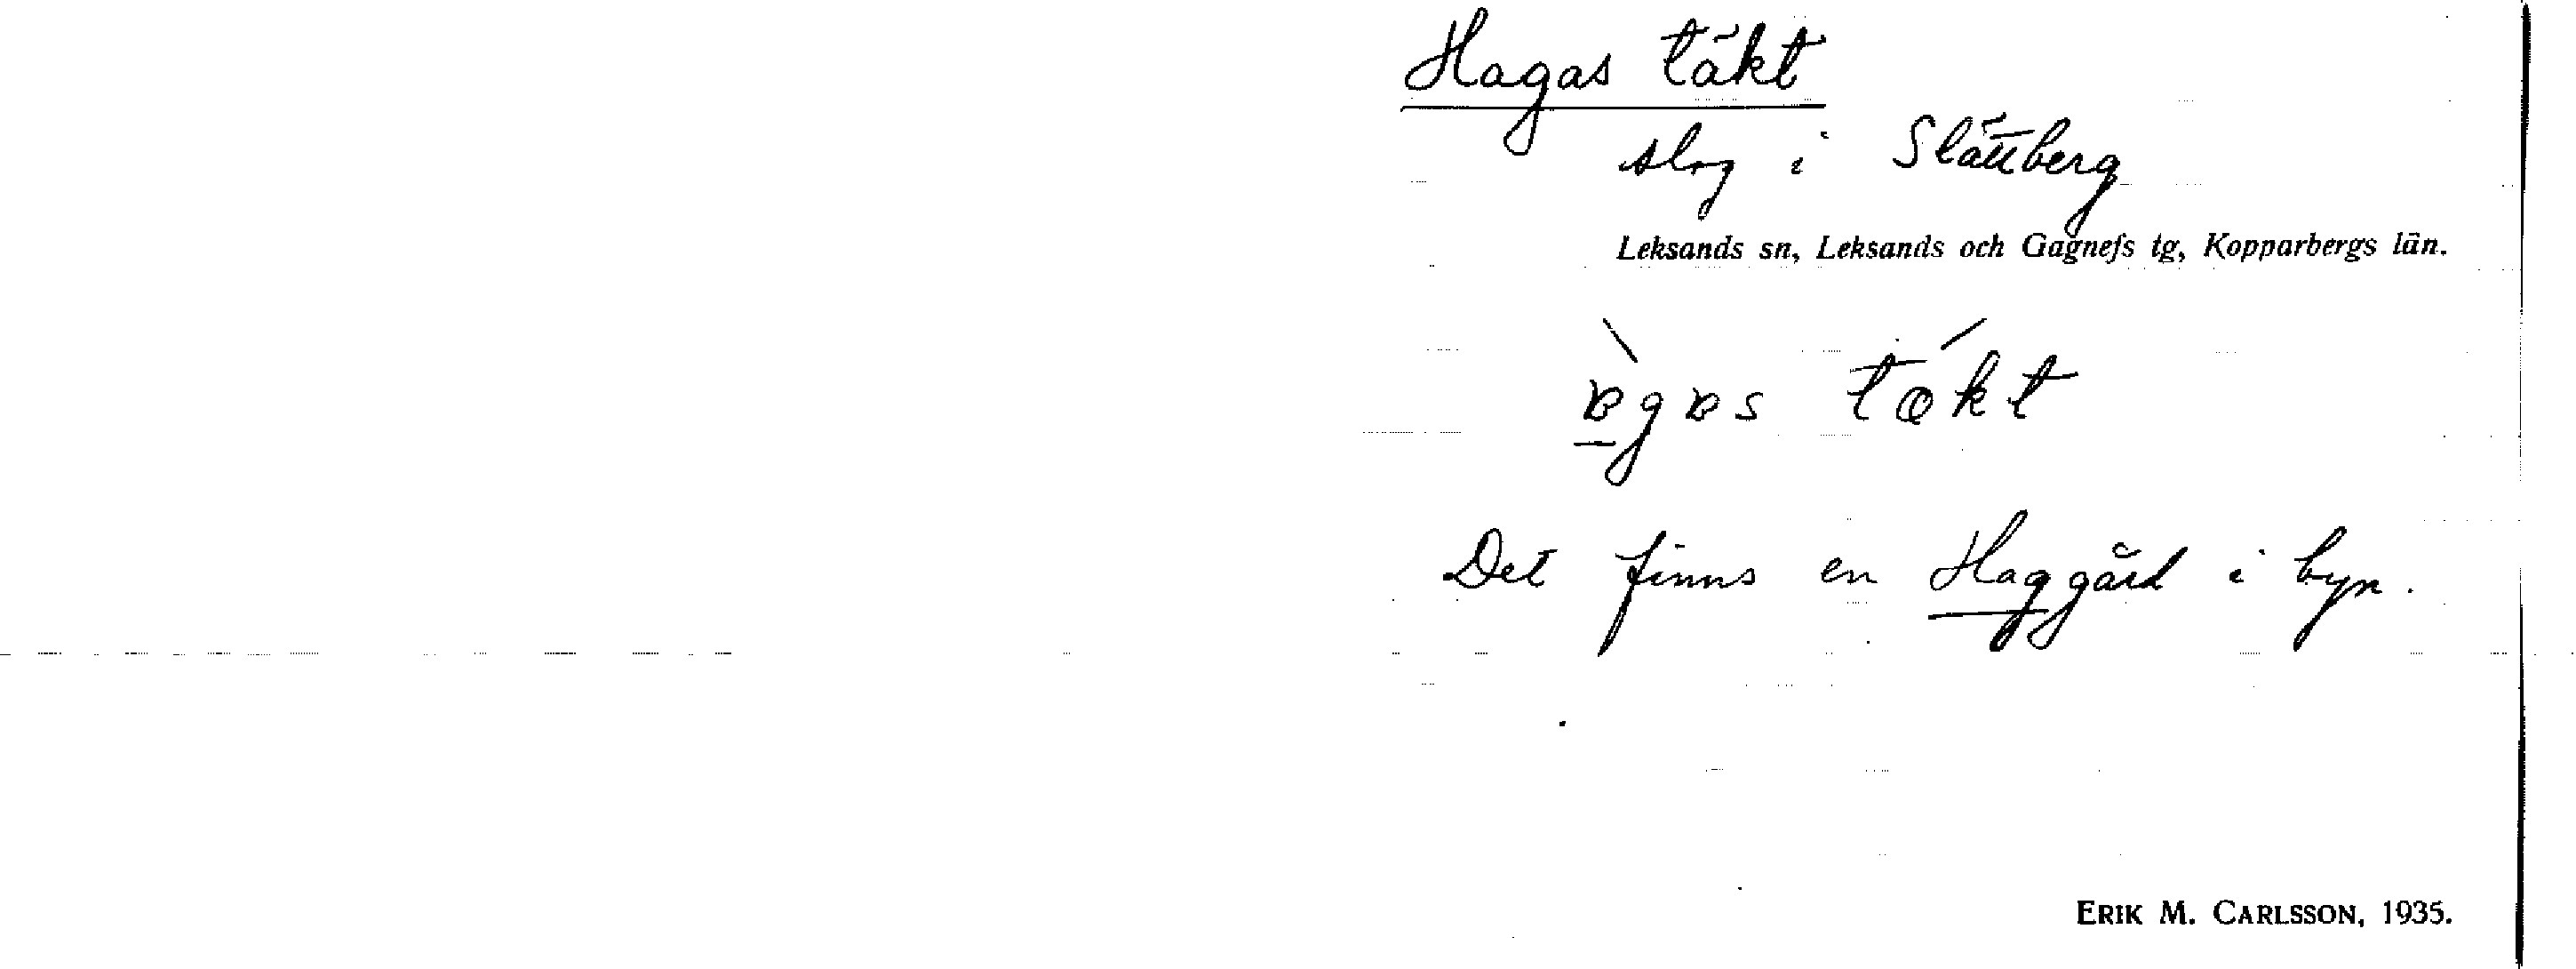 Hagas täkt
slog i Slättberg
Leksands sn, Leksands och Gagnefs tg, Kopparbergs län.
täkt
Det finns en Haggård i byn.
ERIK M. CARLSSON, 1935.